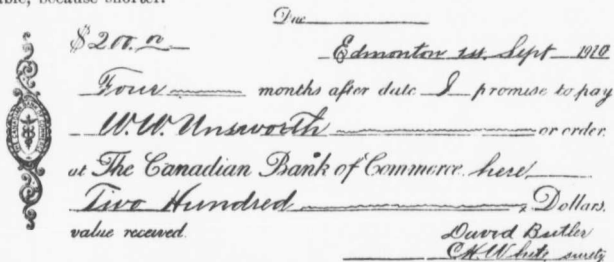 because shorter.
Due
$200.00
Edmonton 1st. Sept 1910
Four months after date I promise to pay
W. W. Unsworth or order
at The Canadian Bank of Commerce here
Two Hundred Dollars,
value received.
David Butler
C.H. White, surety